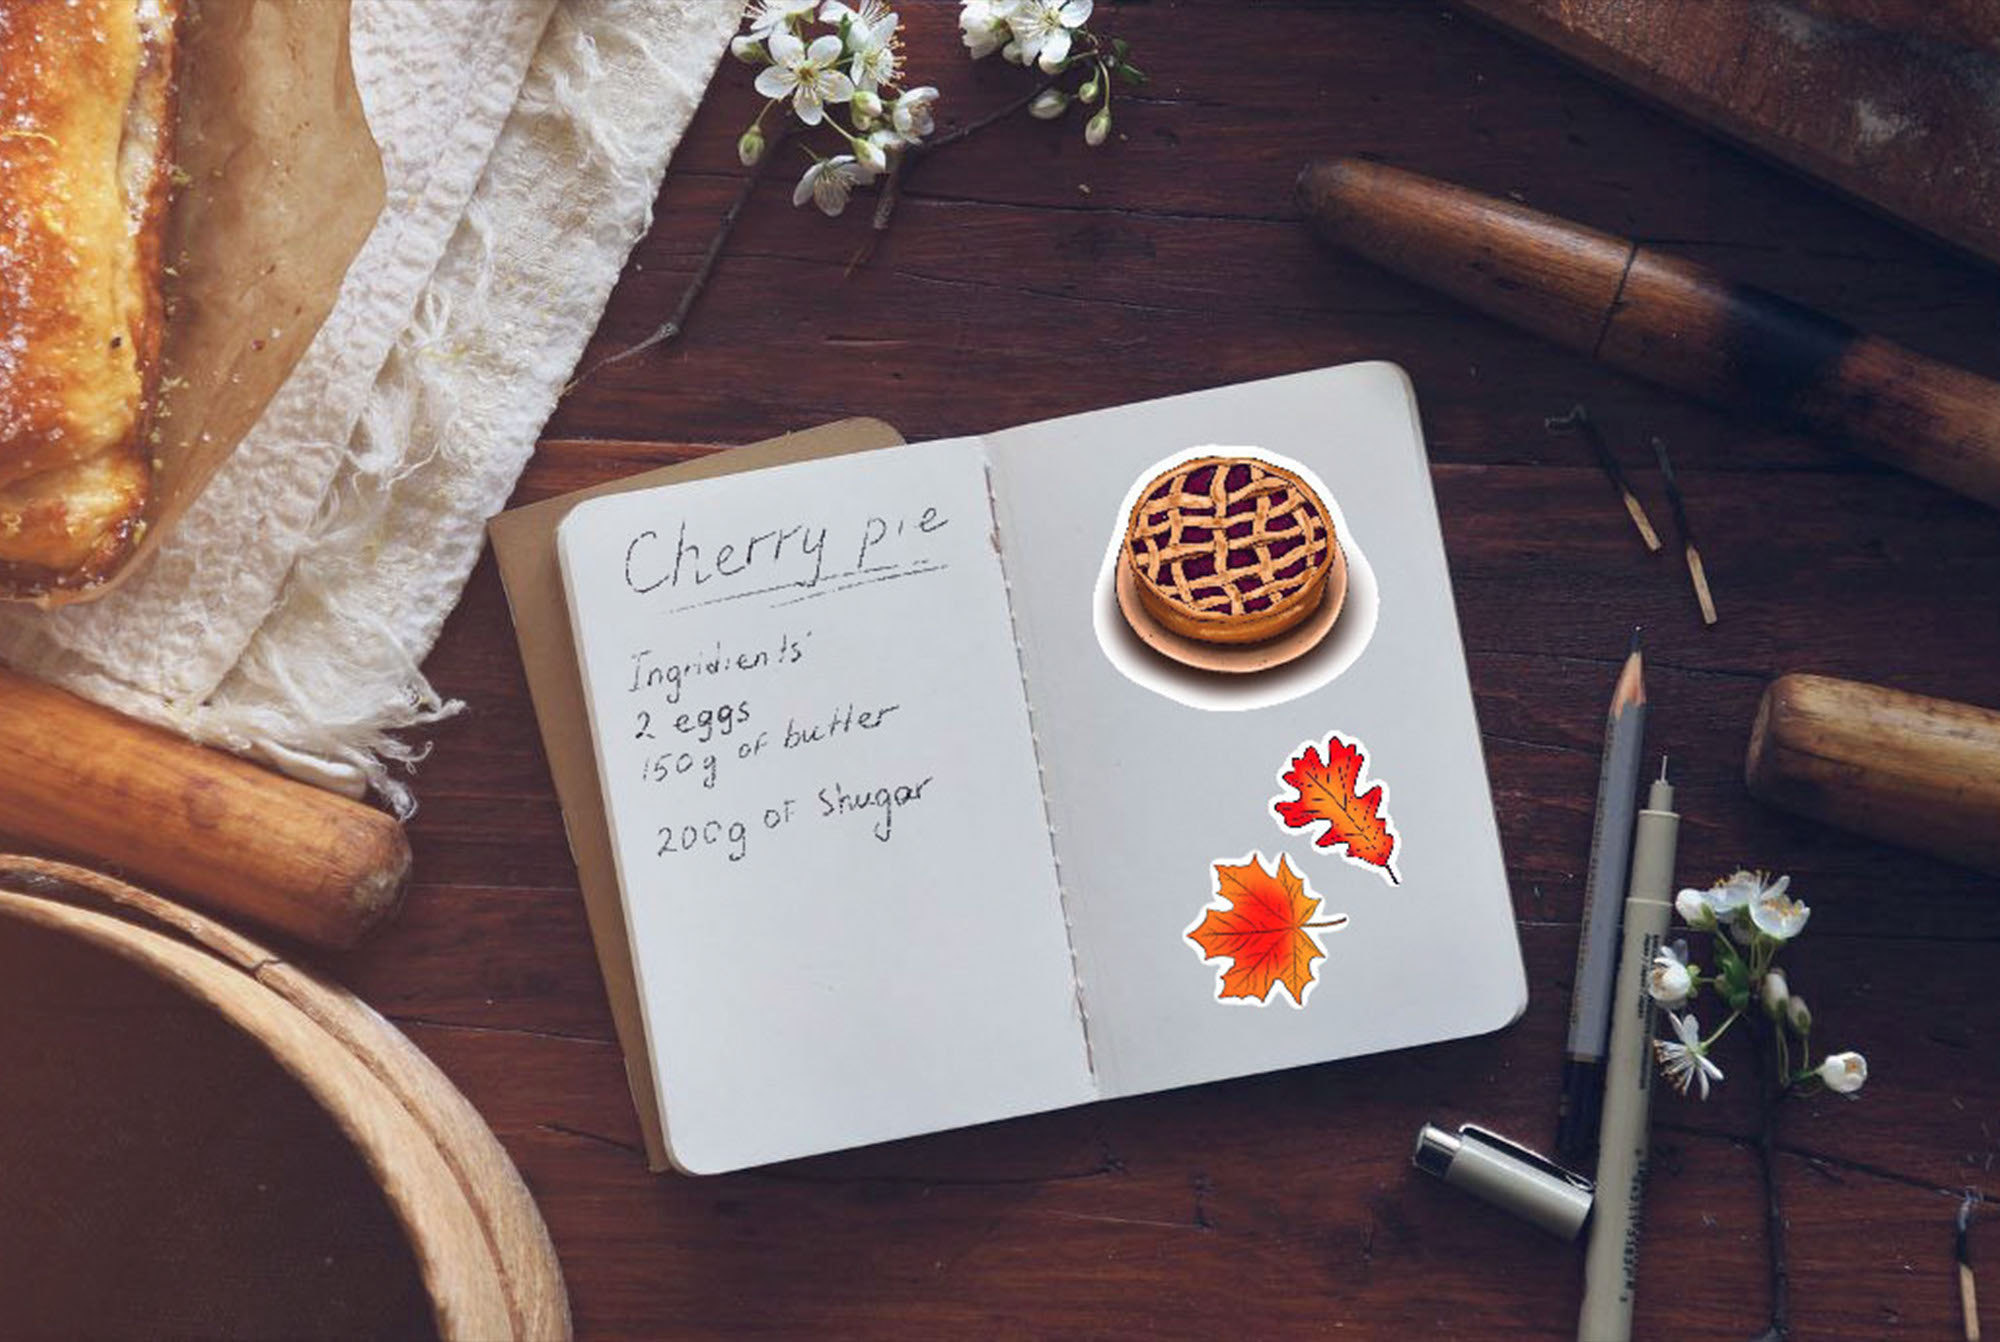 Cherry pie
Ingridients
2 eggs
150g of butter
200g of Shugar